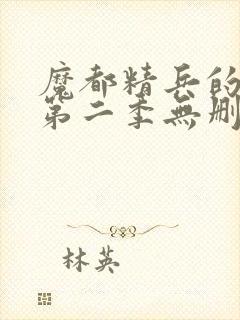 魔都精兵的
第二季無刪
林英